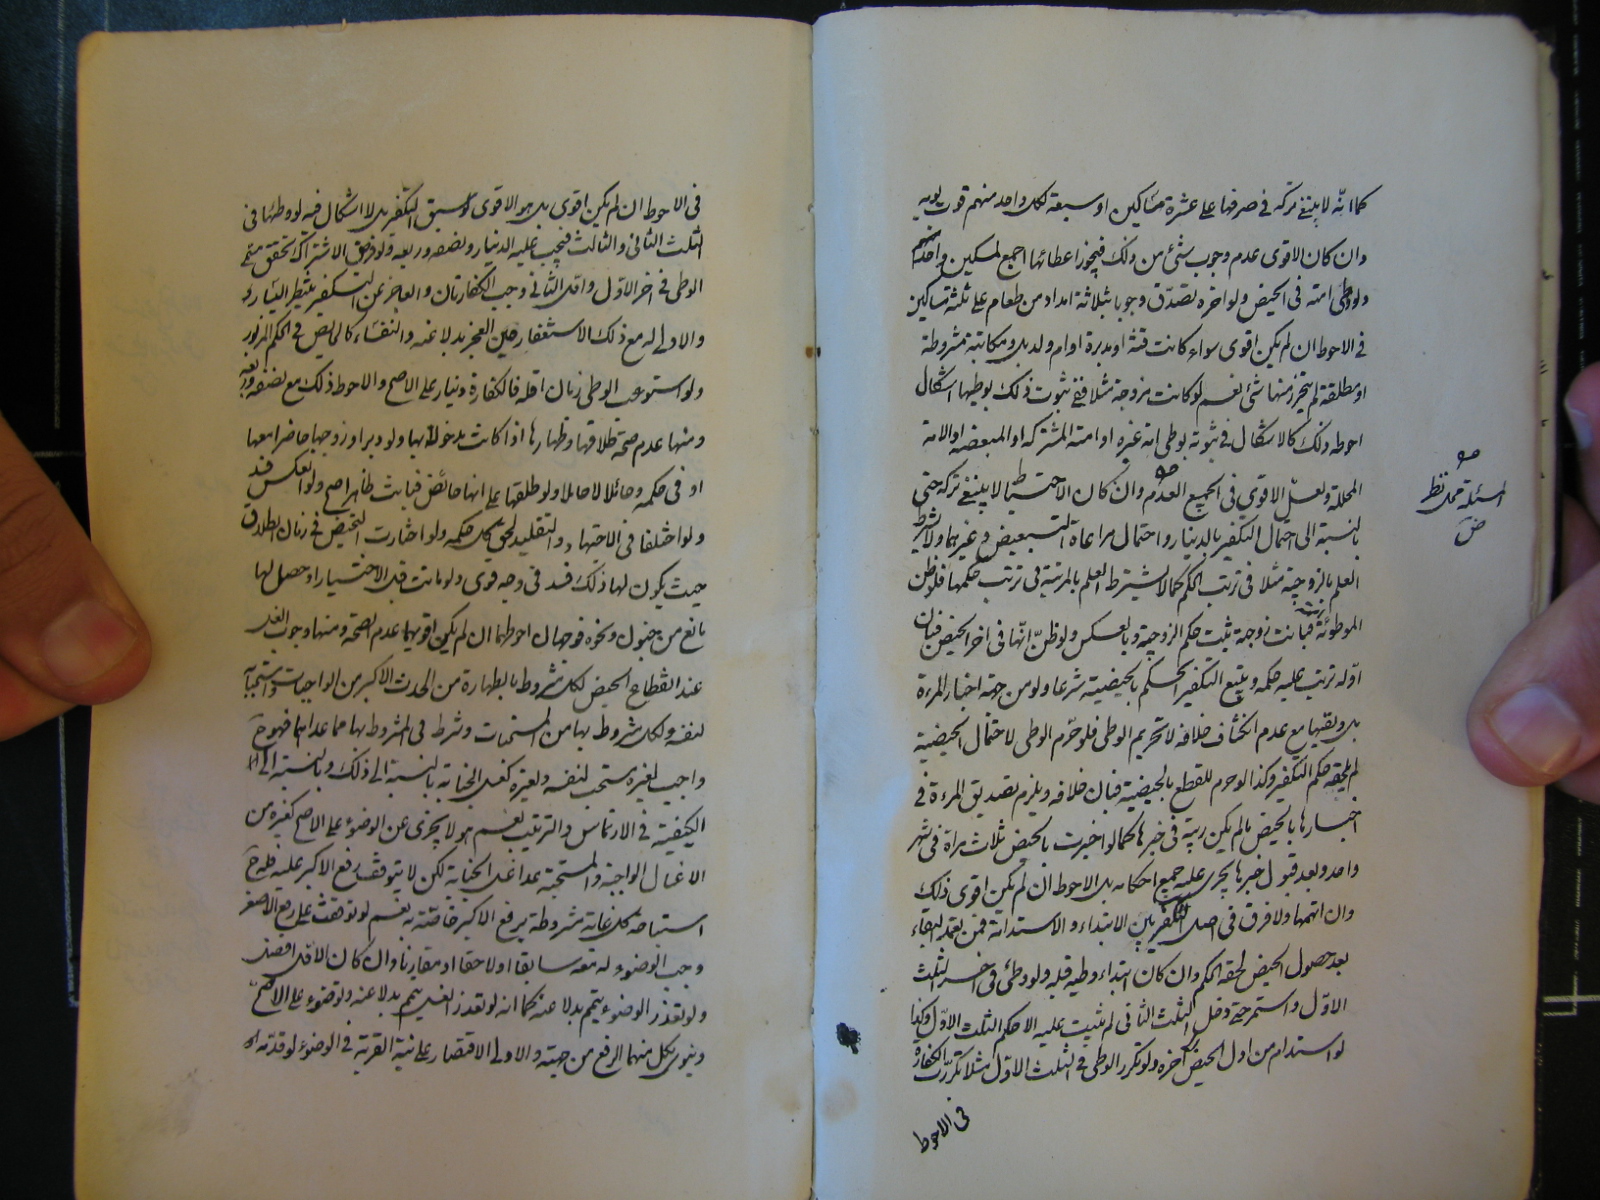 كما انه لا ينبغى تركه فى صرفها على عشرة مساكين او سبعة لكل واحد منهم قوت يومه
وان كان الاقوى عدم وجوب شئ من ذلك فيجوز اعطائها اجمع لمسكين واحد
ولو وطئ امته فى الحيض ولو اخره تصدّق وجوبا بثلاثة امداد من طعام على ثلثة مساكين
فى الاحوط ان لم يكن اقوى سواء كانت قنة او مدبرة او ام ولد بل ومكاتبة مشروطة
او مطلقة لم يتحرر منها شئ نعم لو كانت مزوجة مثلا ففى ثبوت ذلك بوطيها اشكال
احوطه ذلك كالاشكال فى ثبوته بوطى امة غيره او امته المشتركة او المبعضة او الامة
المحللة ولعلّ الاقوى فى الجميع العدم وان كان الاحتياط لا ينبغى تركه حتى
بالنسبة الى احتمال التكفير بالدينار واحتمال مراعاة التبعيض وغيرهما ولا يشترط
العلم بالزوجية مثلا فى ترتب الحكم كما لا يشترط العلم بالمرتبة فى ترتب حكمها فلو ظن
الموطوئة فبانت زوجة ثبت حكم الزوجية وبالعكس ولو ظنّ انّها فى اخر الحيض فبان
اوّله ترتب عليه حكمه ويتبع التكفير الحكم بالحيضية شرعا ولو من جهة اخبار المرءة
بل وبقيها مع عدم انكشاف خلافه لا تحريم الوطى فلو حرّم الوطى لاحتمال الحيضية
لم يلحقه حكم التكفير وكذا لو حرم للقطع بالحيضية فبان خلافه ويلزم تصديق المرءة فى
اخبارها بالحيض ما لم يكن ريبة فى خبرها كما لو اخبرت بالحيض ثلاث مراة فى شهر
واحد وبعد قبول خبرها يجرى عليه جميع احكامه بل الاحوط ان لم يكن اقوى ذلك
وان اتهمها ولا فرق فى اصل التكفير بين الابتداء والاستدامة فمن تعمد البقاء
بعد حصول الحيض لحقه الحكم وان كان ابتداء وطيه قبله ولو وطئ فى اخر الثلث
الاوّل واستمر حتى دخل الثلث الثانى لم يثبت عليه الا حكم الثلث الاوّل وكذا
لو استدام من اول الحيض الى آخره ولو تكرر الوطى فى الثلث الاوّل مثلا تكررت الكفارة
فى الاحوط
المسئلة محل نظر
فى الاحوط ان لم يكن اقوى بل هو الاقوى لو سبق التكفير بل لا اشكال فيه لو وطئها فى
الثلث الثانى والثالث فيجب عليه الدينار ونصفه وربعه ولو فرض الاشتراك تحقق مسمى
الوطى فى اخر الاوّل واول الثانى وجب الكفارتان والعاجز عن التكفير ينتظر اليسار
والاولى له مع ذلك الاستغفار حين العجز بدلا عنه والنفساء كالحائض فى الحكم المزبور
ولو استوعب الوطى زمان اقله فالكفارة دينار على الاصح والاحوط ذلك مع نصفه وربعه
ومنها عدم صحة طلاقها وظهارها اذا كانت مدخولا بها ولو دبرا وزوجها حاضر معها
او فى حكمه وحائلا لا حاملا ولو طلقها على انها حائض فبانت طاهرا صح ولو انعكس فسد
ولو اختلفا فى الاجتهاد والتقليد لحق كل حكمه ولو اختارت التحيض فى زمان الطلاق
حيث يكون لها ذلك فسد فى وجه قوى ولو ماتت قبل الاختيار او حصل لها
مانع من جنون ونحوه فوجهان احوطهما ان لم يكن اقويهما عدم الصحة ومنها وجوب الغسل
عند انقطاع الحيض لكل مشروط بالطهارة من الحدث الاكبر من الواجبات واستحبابه
لنفسه ولكل مشروط بها من المستحبات وشرط فى المشروط بها مما عداهما فهو ح
واجب لغيره مستحب لنفسه ولغيره كغسل الجنابة بالنسبة الى ذلك وبالنسبة الى
الكيفية فى الارتماس والترتيب نعم هو لا يجزى عن الوضوء على الاصح كغيره من
الاغسال الواجبة والمستحبة عدا غسل الجنابة لكن لا يتوقف رفع الاكبر عليه فله ح
استباحة كل غاية مشروطة برفع الاكبر خاصّة به نعم لو توقفت على رفع الاصغر
وجب الوضوء له معه سابقا او لاحقا او مقارنا وان كان الاول افضل
ولو تعذر الوضوء تيمم بدلا عنه كما انه لو تعذر الغسل تيمم بدلا عنه وتوضوء على الاصحّ
وينوى بكل منهما الرفع من جهته والاولى الاقتصار على نية القربة فى الوضوء لو قدمه